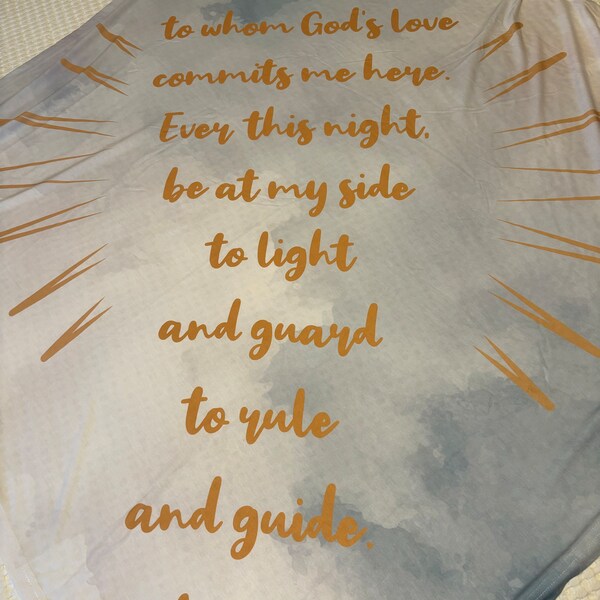 to whom God's love
commits me here.
Ever this night,
be at my side
to light
and guard
to rule
and guide.